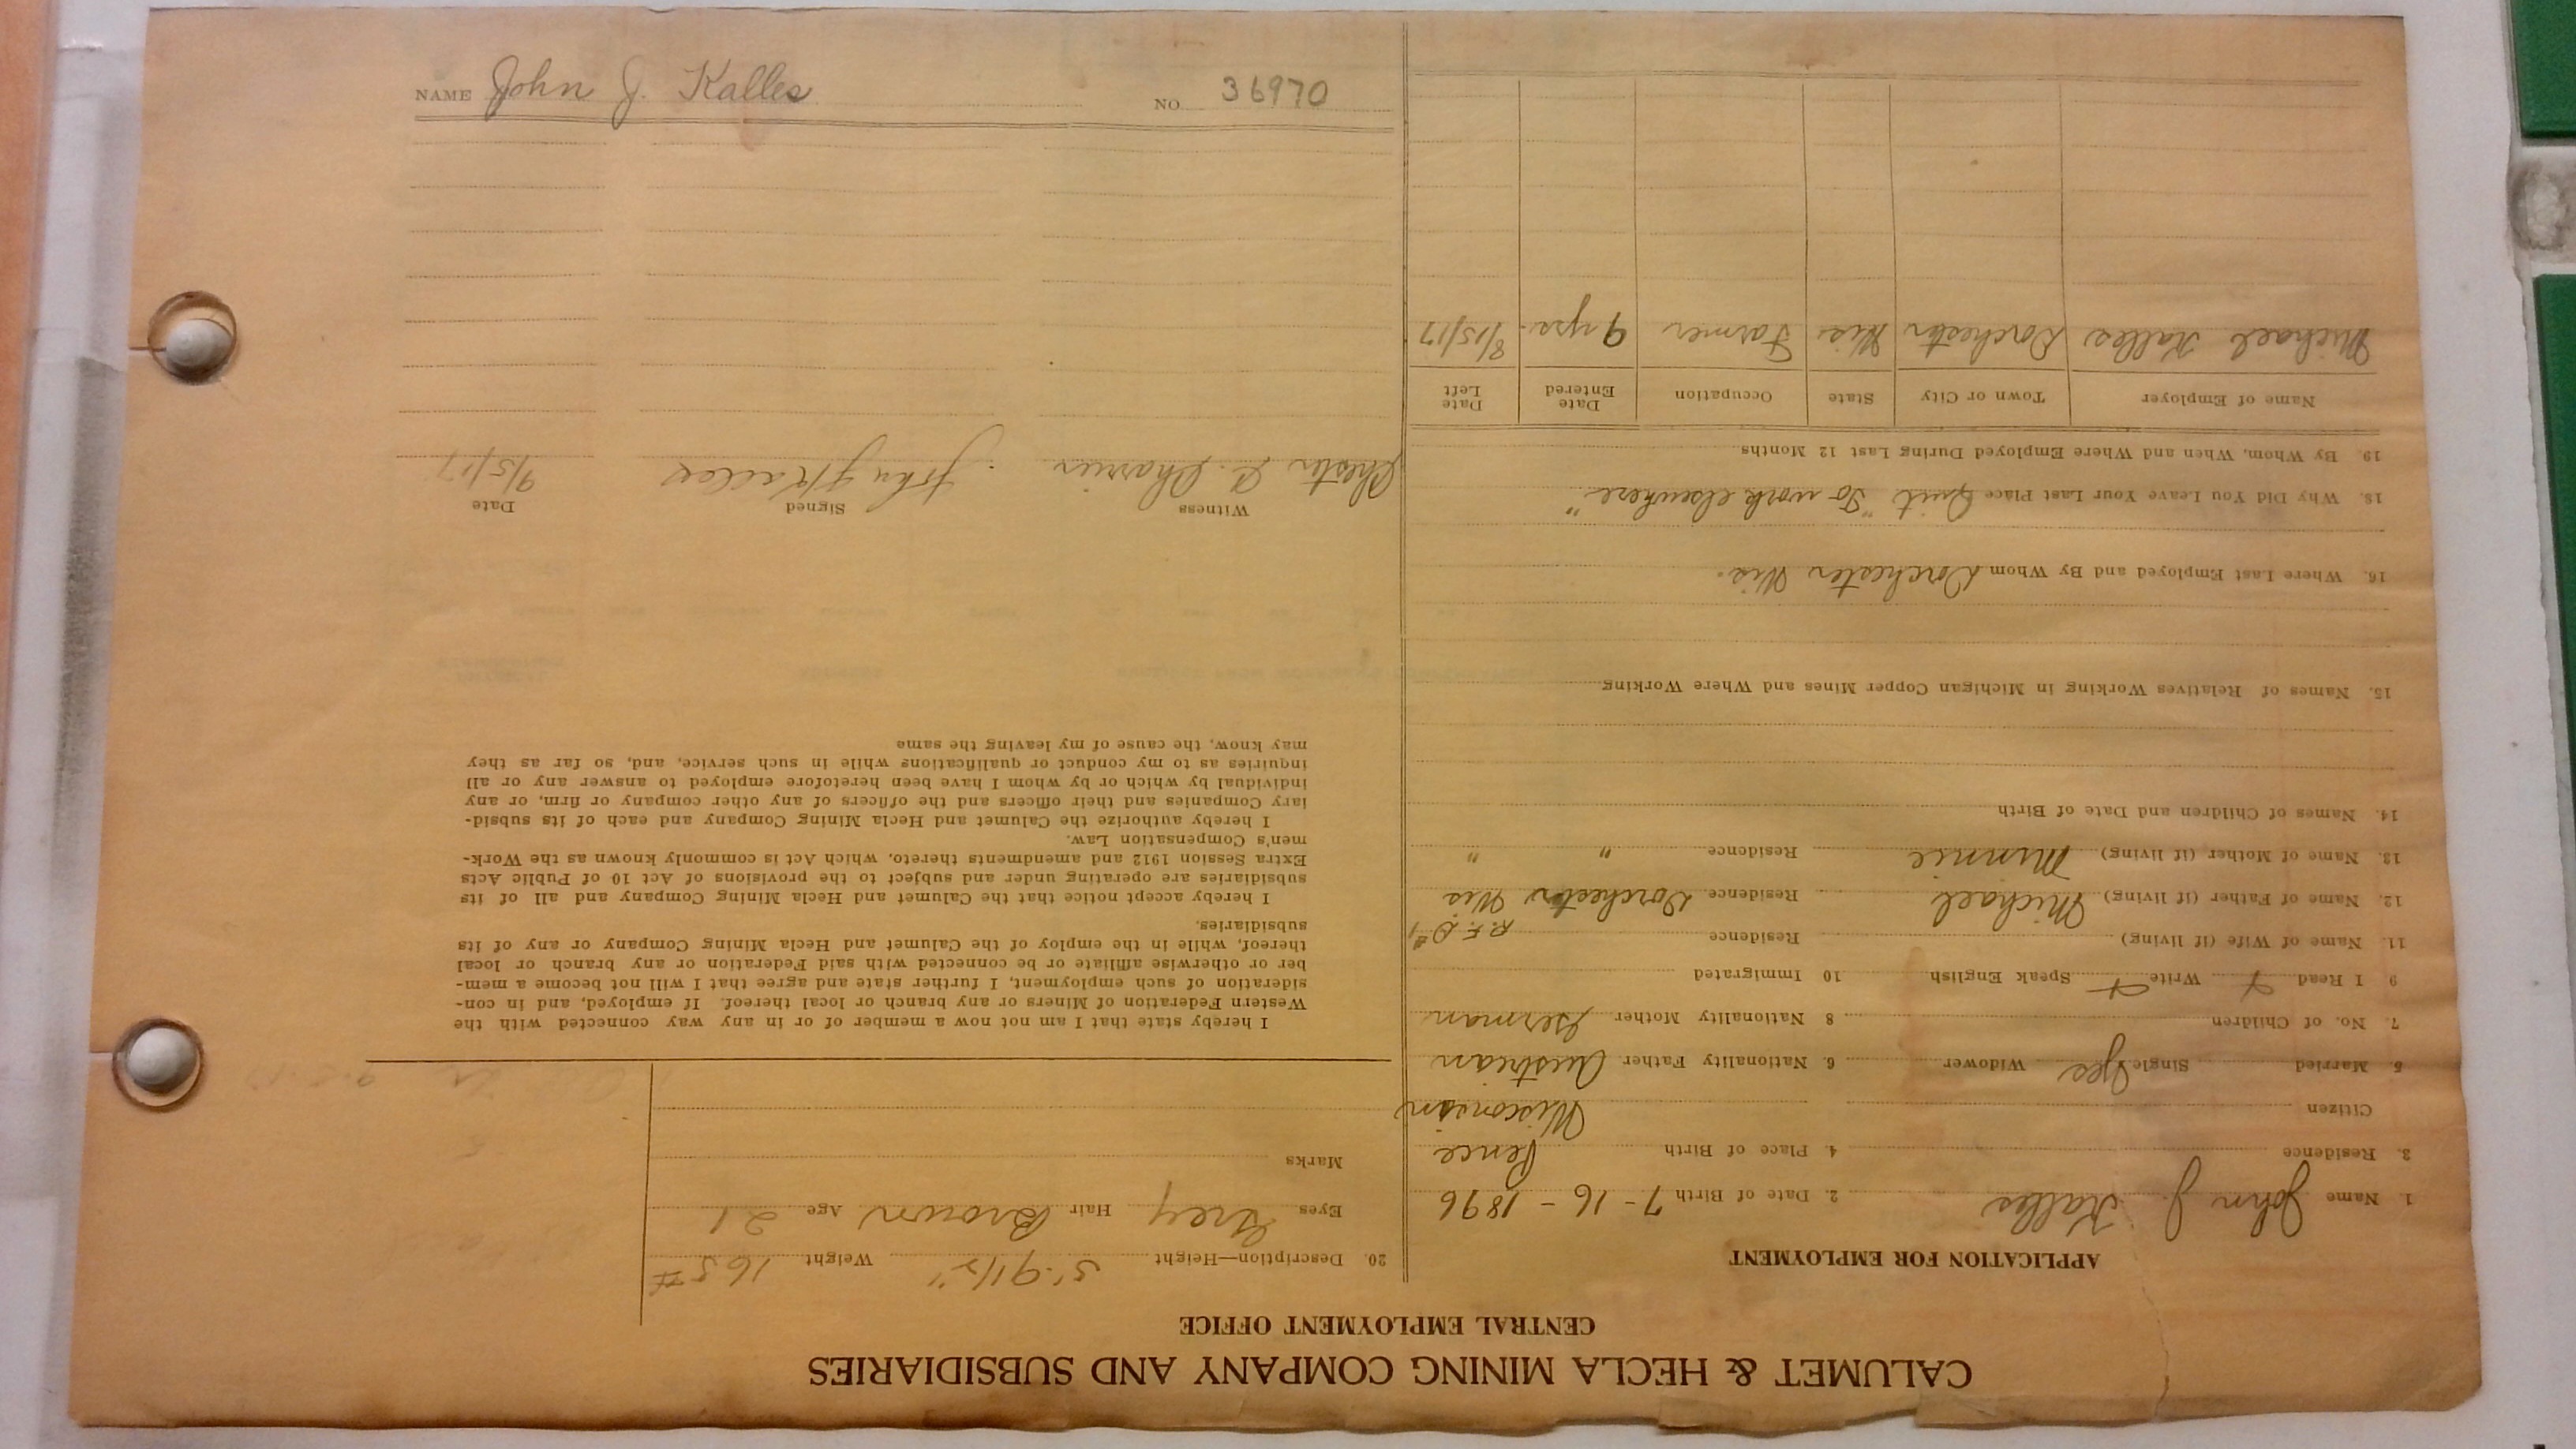 CALUMET & HECLA MINING COMPANY AND SUBSIDIARIES
CENTRAL EMPLOYMENT OFFICE
APPLICATION FOR EMPLOYMENT
1 Name John J. Kalles 2. Date of Birth 7 - 16 - 1896
3. Residence 4. Place of Birth Pence
Citizen Wisconsin
5 Married Single Yes Widower 6. Nationality Father Austrian
7. No. of Children 8 Nationality Mother German
9 I Read Write Speak English 10 Immigrated
11. Name of Wife (if living) Residence R. F. D #1
12. Name of Father (if living) Michael Residence Dorchester Wis
13. Name of Mother (if living) Minnie Residence " "
14. Names of Children and Date of Birth
15. Names of Relatives Working in Michigan Copper Mines and Where Working
16. Where Last Employed and By Whom Dorchester Wis.
18. Why Did You Leave Your Last Place Quit "To work elsewhere"
19. By Whom, When and Where Employed During Last 12 Months
Name of Employer Town or City State Occupation Date Entered Date Left
Michael Kalles Dorchester Wis Farmer 9 yrs. 8/15/17
20. Description—Height 5'-9 1/2" Weight 165#
Eyes Grey Hair Brown Age 21
Marks
I hereby state that I am not now a member of or in any way connected with the
Western Federation of Miners or any branch or local thereof. If employed, and in con-
sideration of such employment, I further state and agree that I will not become a mem-
ber or otherwise affiliate or be connected with said Federation or any branch or local
thereof, while in the employ of the Calumet and Hecla Mining Company or any of its
subsidiaries.
I hereby accept notice that the Calumet and Hecla Mining Company and all of its
subsidiaries are operating under and subject to the provisions of Act 10 of Public Acts
Extra Session 1912 and amendments thereto, which Act is commonly known as the Work-
men's Compensation Law.
I hereby authorize the Calumet and Hecla Mining Company and each of its subsid-
iary Companies and their officers and the officers of any other company or firm, or any
individual by which or by whom I have been heretofore employed to answer any or all
inquiries as to my conduct or qualifications while in such service, and, so far as they
may know, the cause of my leaving the same
Witness Signed Date
Chester L. John J Kalles 9/5/17
NAME John J. Kalles NO. 36970